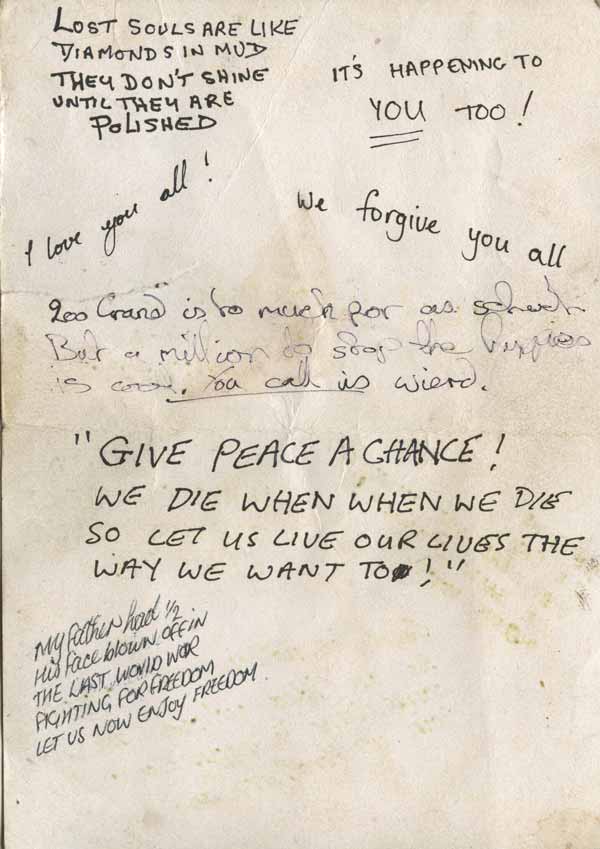 LOST SOULS ARE LIKE
DIAMONDS IN MUD
THEY DON'T SHINE
UNTIL THEY ARE
POLISHED
IT'S HAPPENING TO
YOU TOO!
I love you all!
We forgive you all
200 Grand is to much for a school
But a million to stop the hippies
is cool. You call us wierd.
"GIVE PEACE A CHANCE!
WE DIE WHEN WHEN WE DIE
SO LET US LIVE OUR LIVES THE
WAY WE WANT TO!"
My father had 1/2
His face blown off in
THE LAST WORLD WAR
FIGHTING FOR FREEDOM
LET US NOW ENJOY FREEDOM.